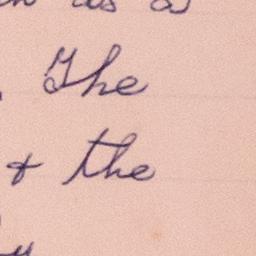 as a
The
+ the